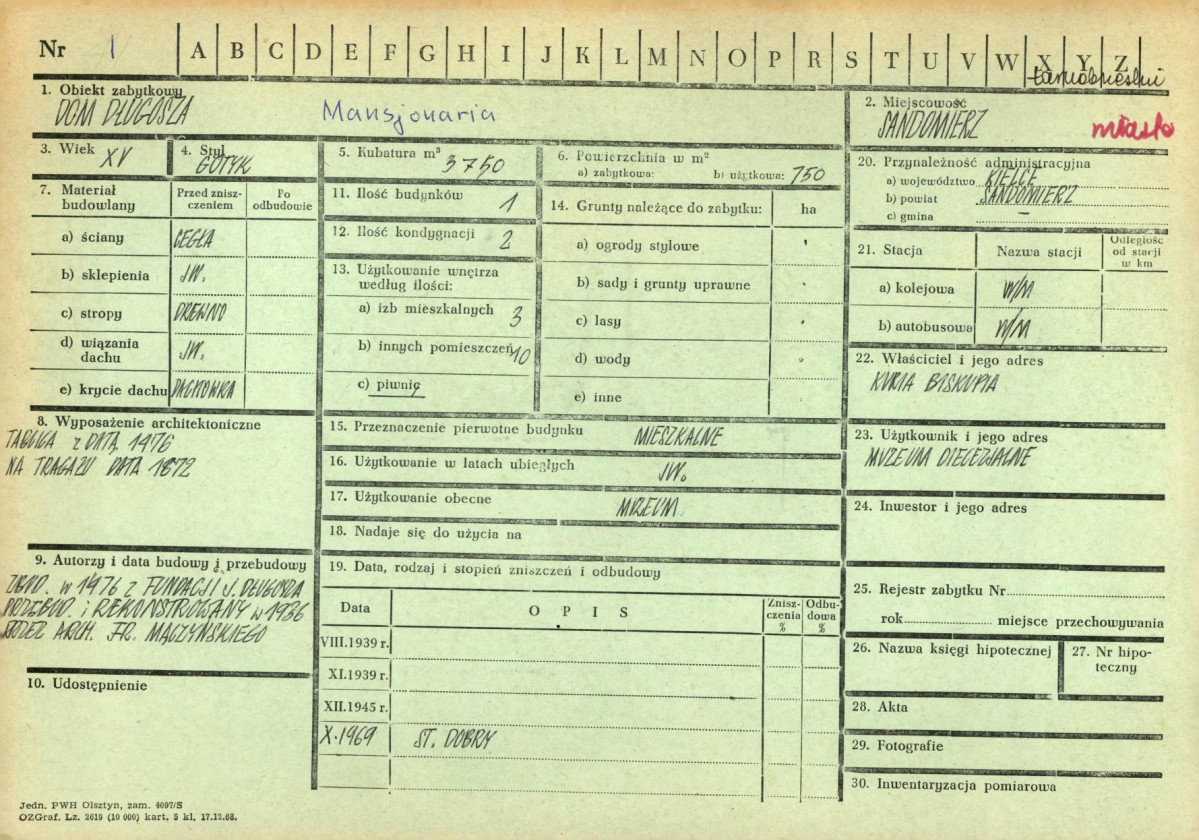 Nr 1 A B C D E F G H I J K L M N O P R S T U V W X Y Z
1. Obiekt zabytkowy
DOM DŁUGOSZA Mansjonaria
2. Miejscowość
SANDOMIERZ miasto
3. Wiek XV
4. Styl
GOTYK
5. Kubatura m³ 3750
6. Powierzchnia w m²
a) zabytkowa: b) użytkowa: 750
20. Przynależność administracyjna
a) województwo KIELCE
b) powiat SANDOMIERZ
c) gmina —
7. Materiał budowlany
Przed zniszczeniem
Po odbudowie
a) ściany CEGŁA
b) sklepienia JW.
c) stropy DREWNO
d) wiązania dachu JW.
e) krycie dachu DACHÓWKA
11. Ilość budynków 1
12. Ilość kondygnacji 2
13. Użytkowanie wnętrza
według ilości:
a) izb mieszkalnych 3
b) innych pomieszczeń 10
c) piwnic
14. Grunty należące do zabytku: ha
a) ogrody stylowe
b) sady i grunty uprawne
c) lasy
d) wody
e) inne
21. Stacja Nazwa stacji Odległość od stacji w km
a) kolejowa W/M
b) autobusowa W/M
22. Właściciel i jego adres
KURIA BISKUPIA
8. Wyposażenie architektoniczne
TABLICA Z DATĄ 1476
NA TRAGARZU DATA 1872
15. Przeznaczenie pierwotne budynku MIESZKALNE
16. Użytkowanie w latach ubiegłych JW.
17. Użytkowanie obecne MUZEUM
18. Nadaje się do użycia na
23. Użytkownik i jego adres
MUZEUM DIECEZJALNE
24. Inwestor i jego adres
9. Autorzy i data budowy i przebudowy
ZBUD. w 1476 z FUNDACJI J. DŁUGOSZA
PRZEBUD. i REKONSTRUOWANY w 1936
PODŁ. ARCH. FR. MĄCZYŃSKIEGO
19. Data, rodzaj i stopień zniszczeń i odbudowy
Data OPIS Zniszczenia % Odbudowa %
VIII.1939 r.
XI.1939 r.
XII.1945 r.
X.1969 ST. DOBRY
25. Rejestr zabytku Nr
rok miejsce przechowywania
26. Nazwa księgi hipotecznej
27. Nr hipoteczny
10. Udostępnienie
28. Akta
29. Fotografie
30. Inwentaryzacja pomiarowa
Jedn. PWH Olsztyn, zam. 4097/S
OZGraf. Lz. 2619 (10 000) kart. 5 kl. 17.12.68.